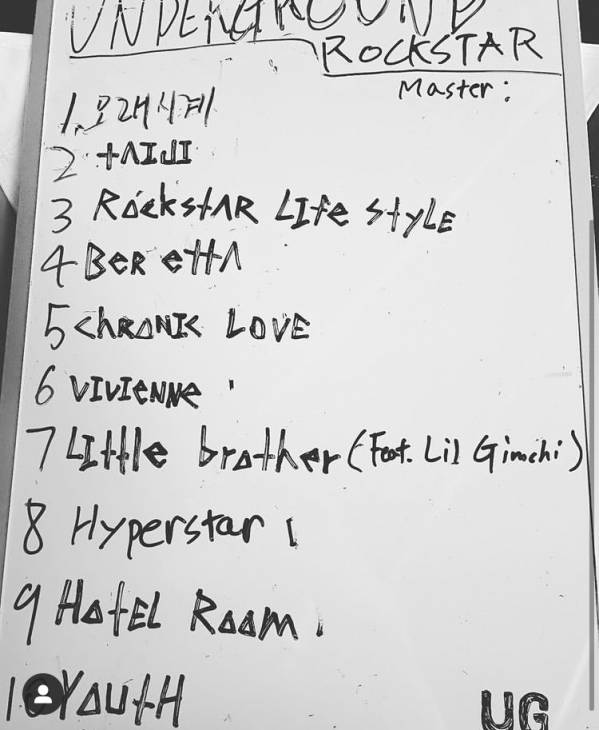 UNDERGROUND
ROCKSTAR
Master:
1. 모래시계
2 tAIJI
3 RockstAR LIfe StyLE
4 BeR ettA
5 ChRONIC LOVE
6 VIVIeNNe
7 LIttle brother (Feat. Lil Gimchi)
8 Hyperstar
9 HotEL RooM
10 YoutH
UG